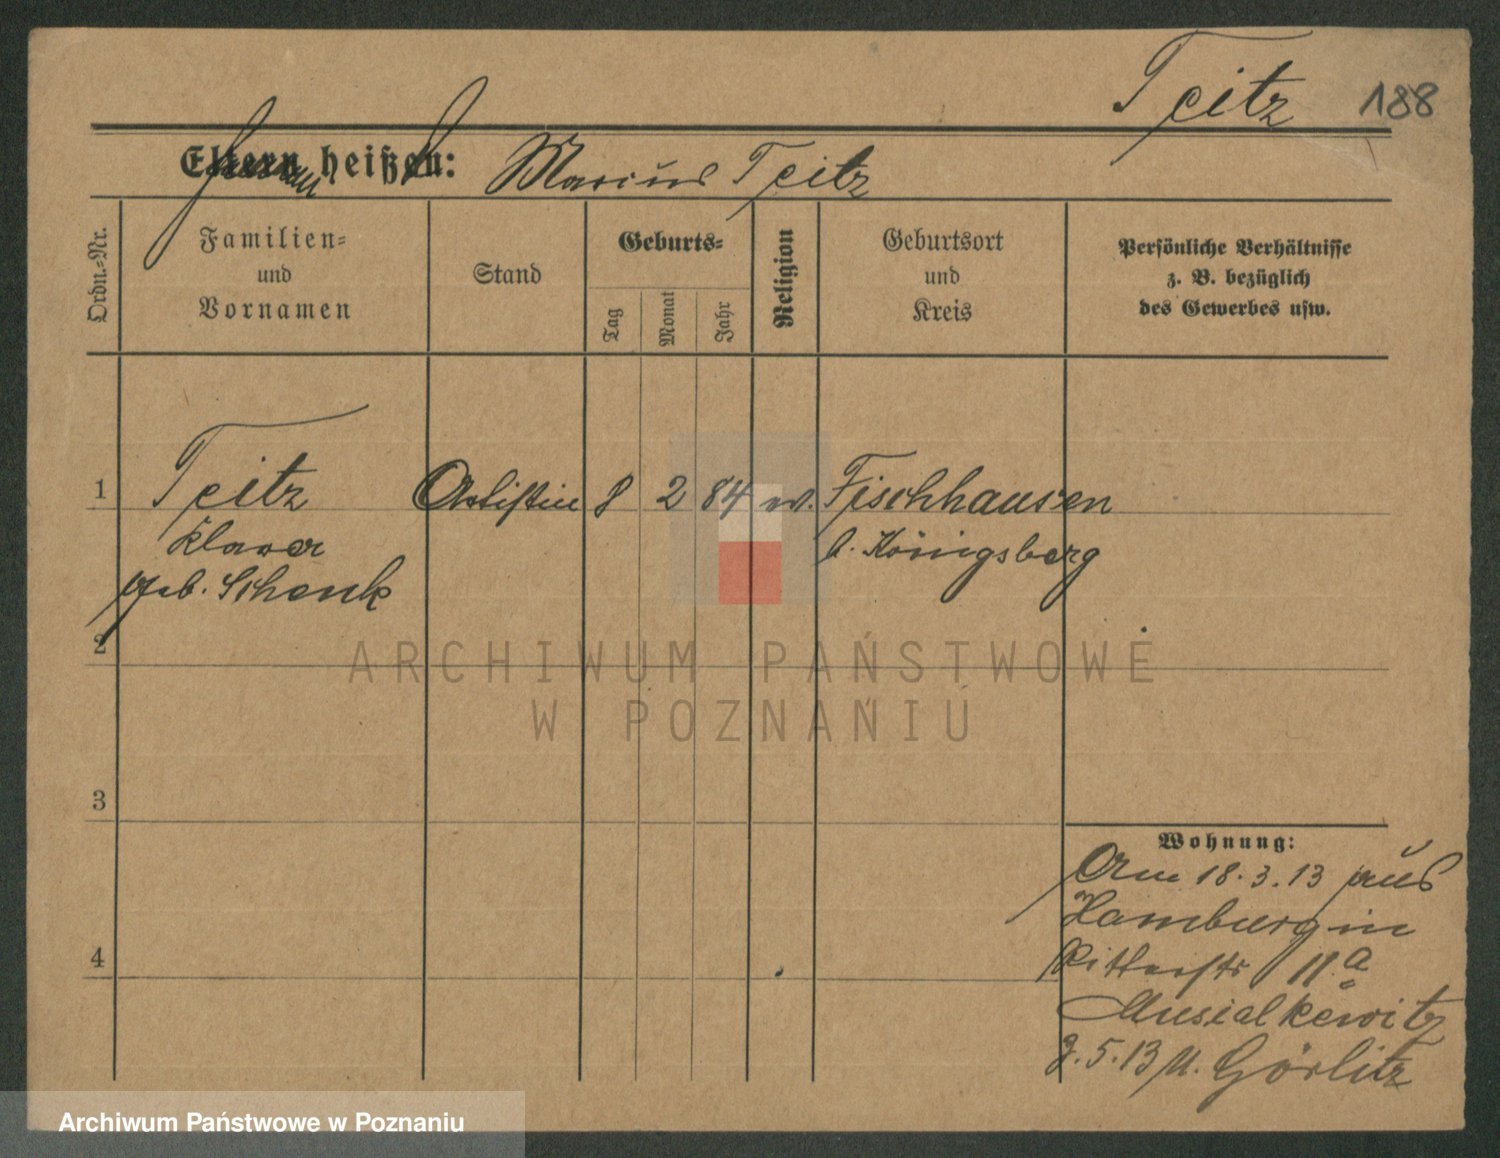 Teitz 188
Eltern heißen: Marius Teitz
Ordn.-Nr.
Familien-
und
Vornamen
Stand
Geburts-
Tag
Monat
Jahr
Religion
Geburtsort
und
Kreis
Persönliche Verhältnisse
z. B. bezüglich
des Gewerbes usw.
1 Teitz Artistin 8 2 84 Fischhausen
b. Königsberg
geb. Schenk
2
3
4
Wohnung:
Am 18.3.13 aus
Hamburg in
Ritterstr 11.a
Musialkewitz
5.13 n. Görlitz
ARCHIWUM PAŃSTWOWE
W POZNANIU
Archiwum Państwowe w Poznaniu